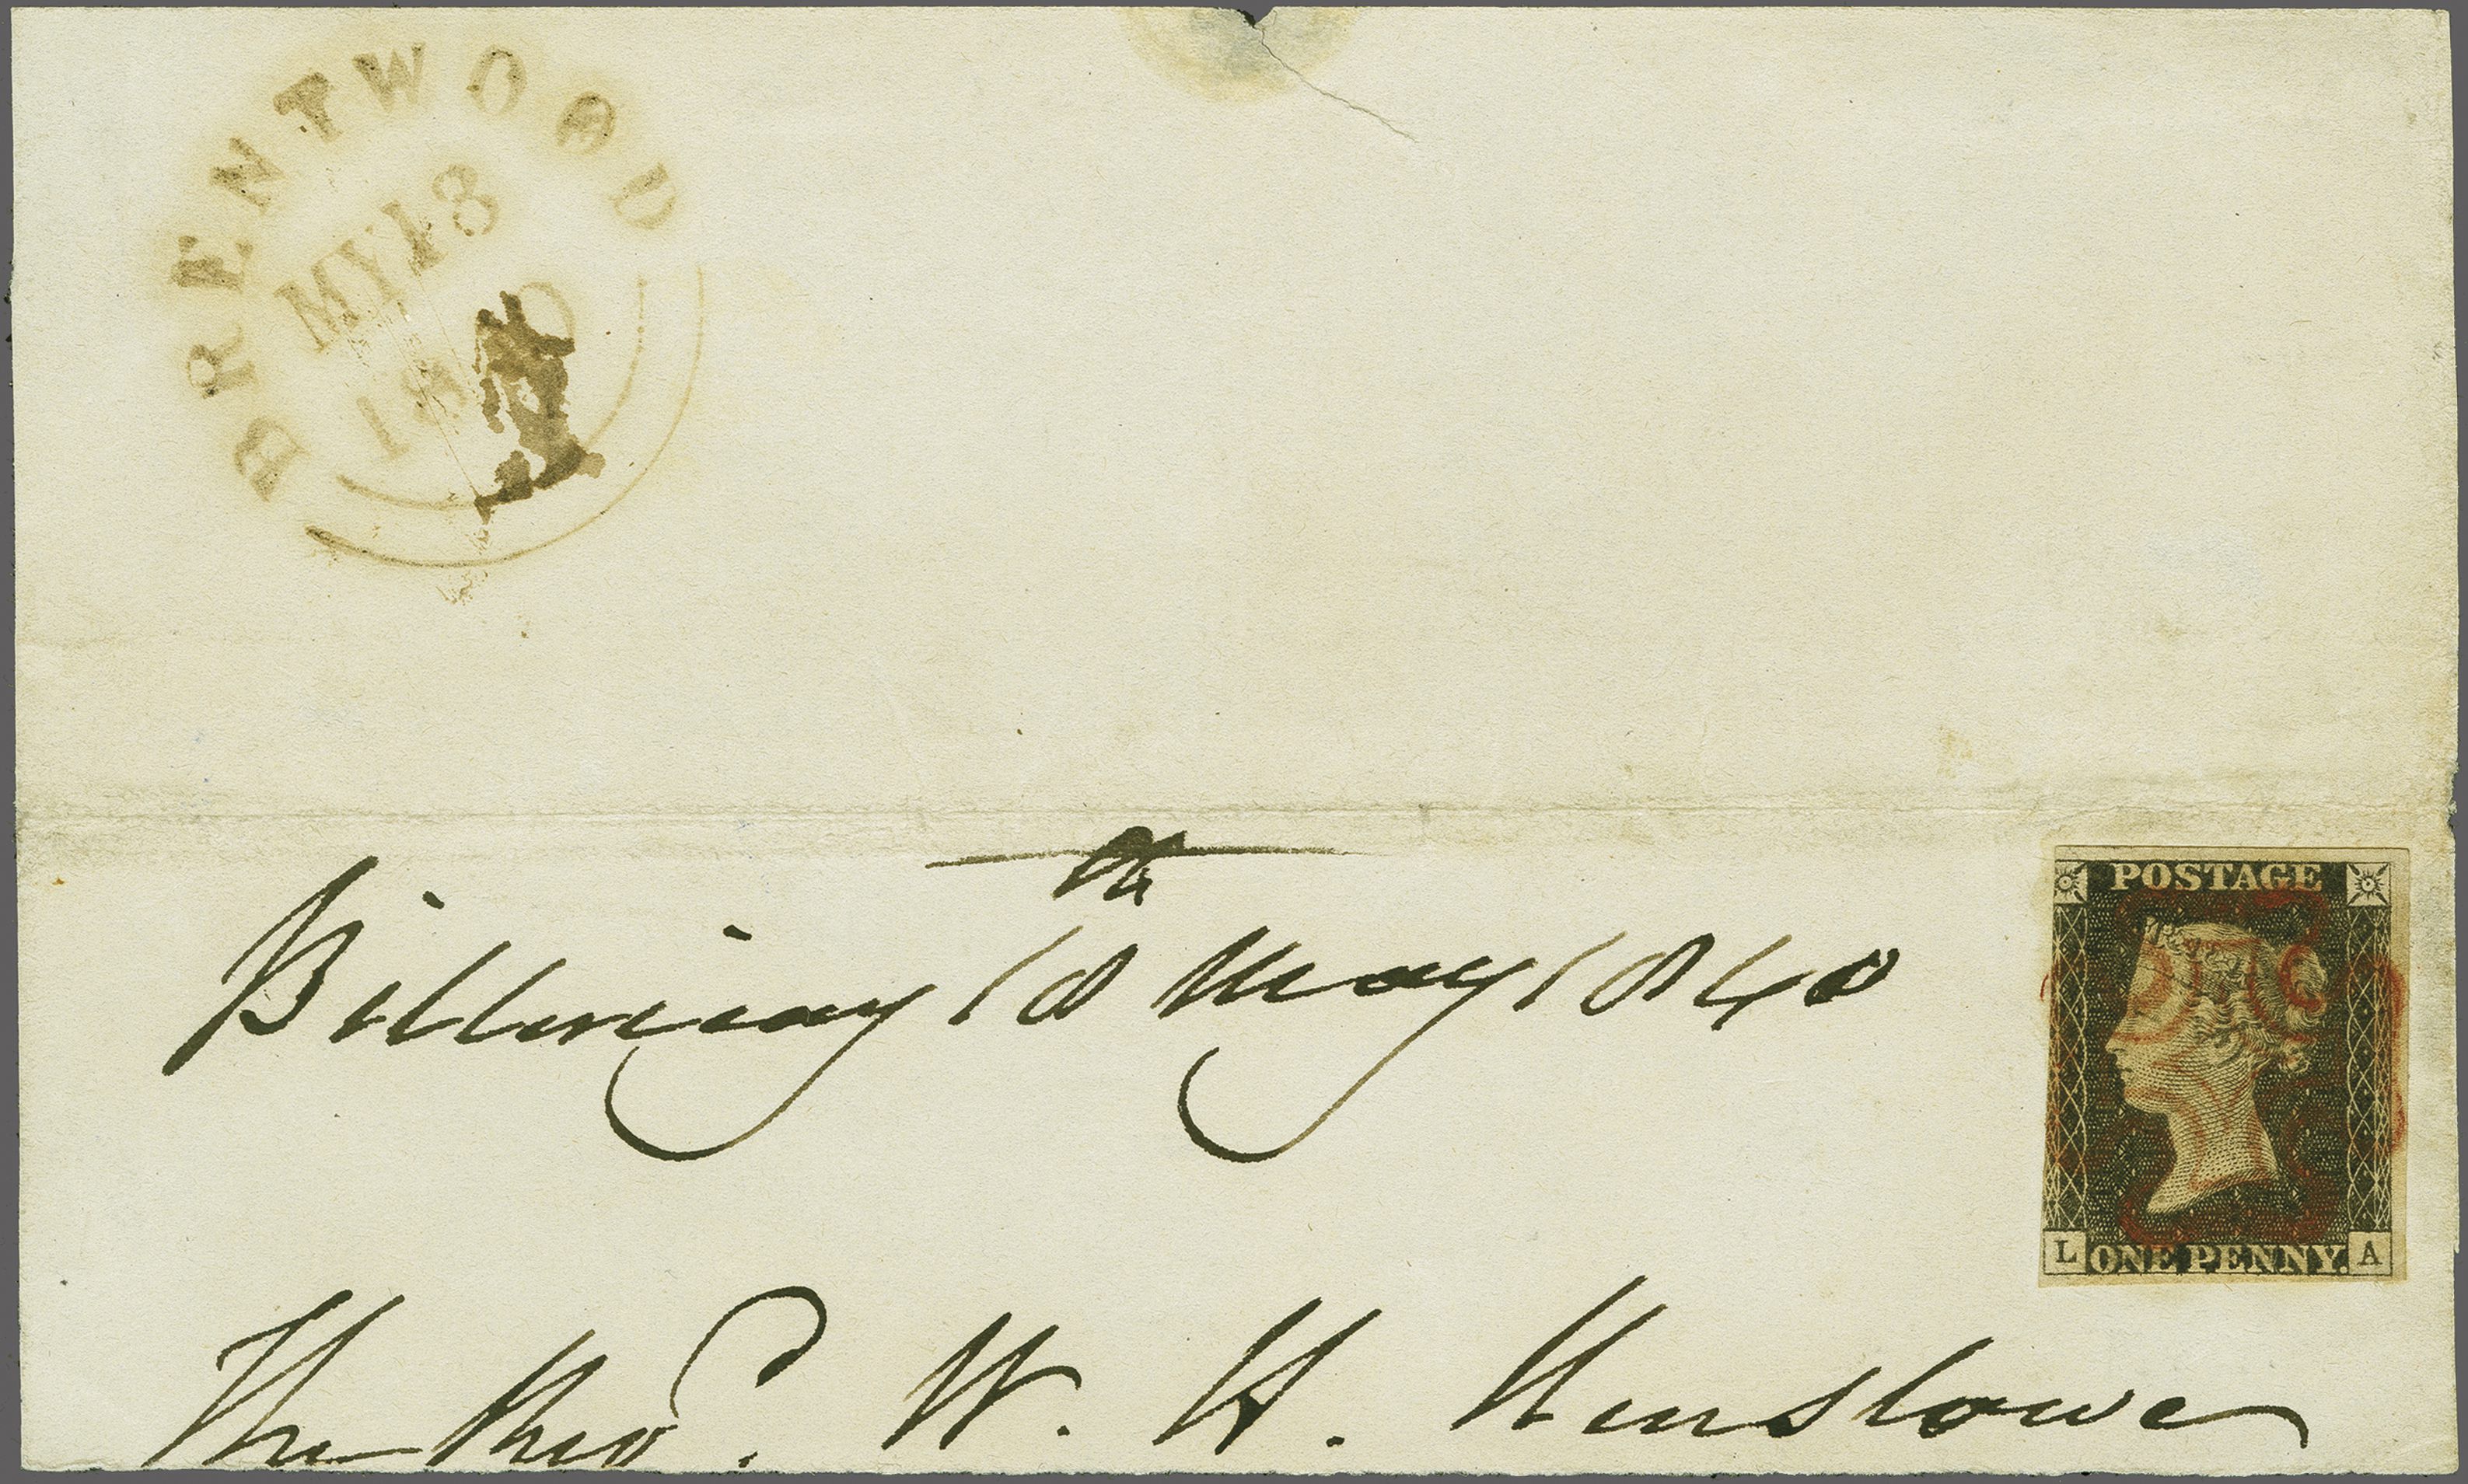 BRENTWOOD
MY 18
1840
Billericay 18th May 1840
POSTAGE
L ONE PENNY. A
The Revd. W. H. Henslowe